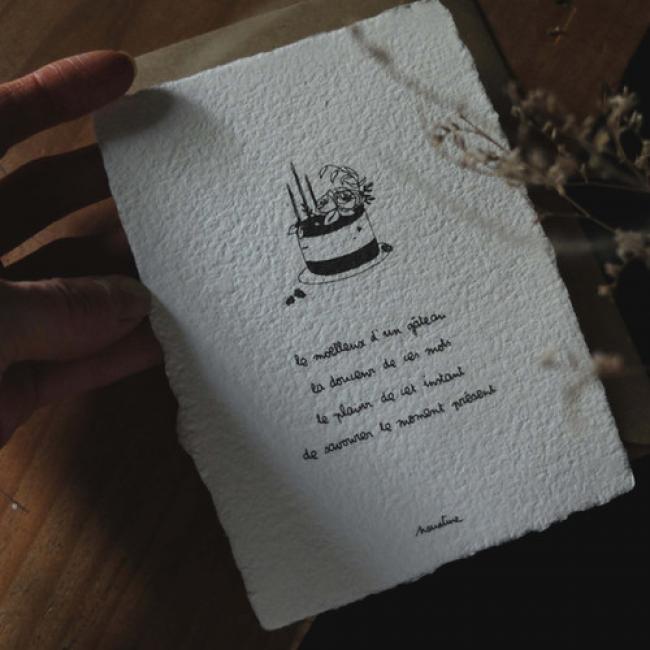 le moelleux d'un gâteau
la douceur de ces mots
le plaisir de cet instant
de savourer le moment présent